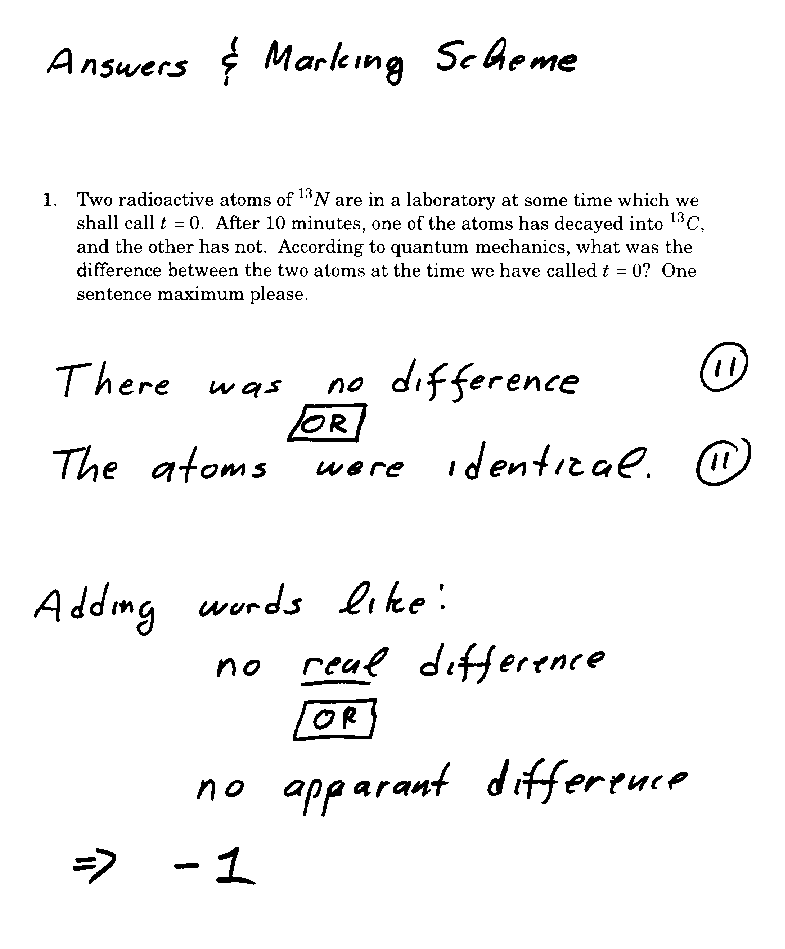 Answers & Marking Scheme
1. Two radioactive atoms of ¹³N are in a laboratory at some time which we
shall call t = 0. After 10 minutes, one of the atoms has decayed into ¹³C,
and the other has not. According to quantum mechanics, what was the
difference between the two atoms at the time we have called t = 0? One
sentence maximum please.
There was no difference 11
OR
The atoms were identical. 11
Adding words like:
no real difference
OR
no apparant difference
⇒ -1